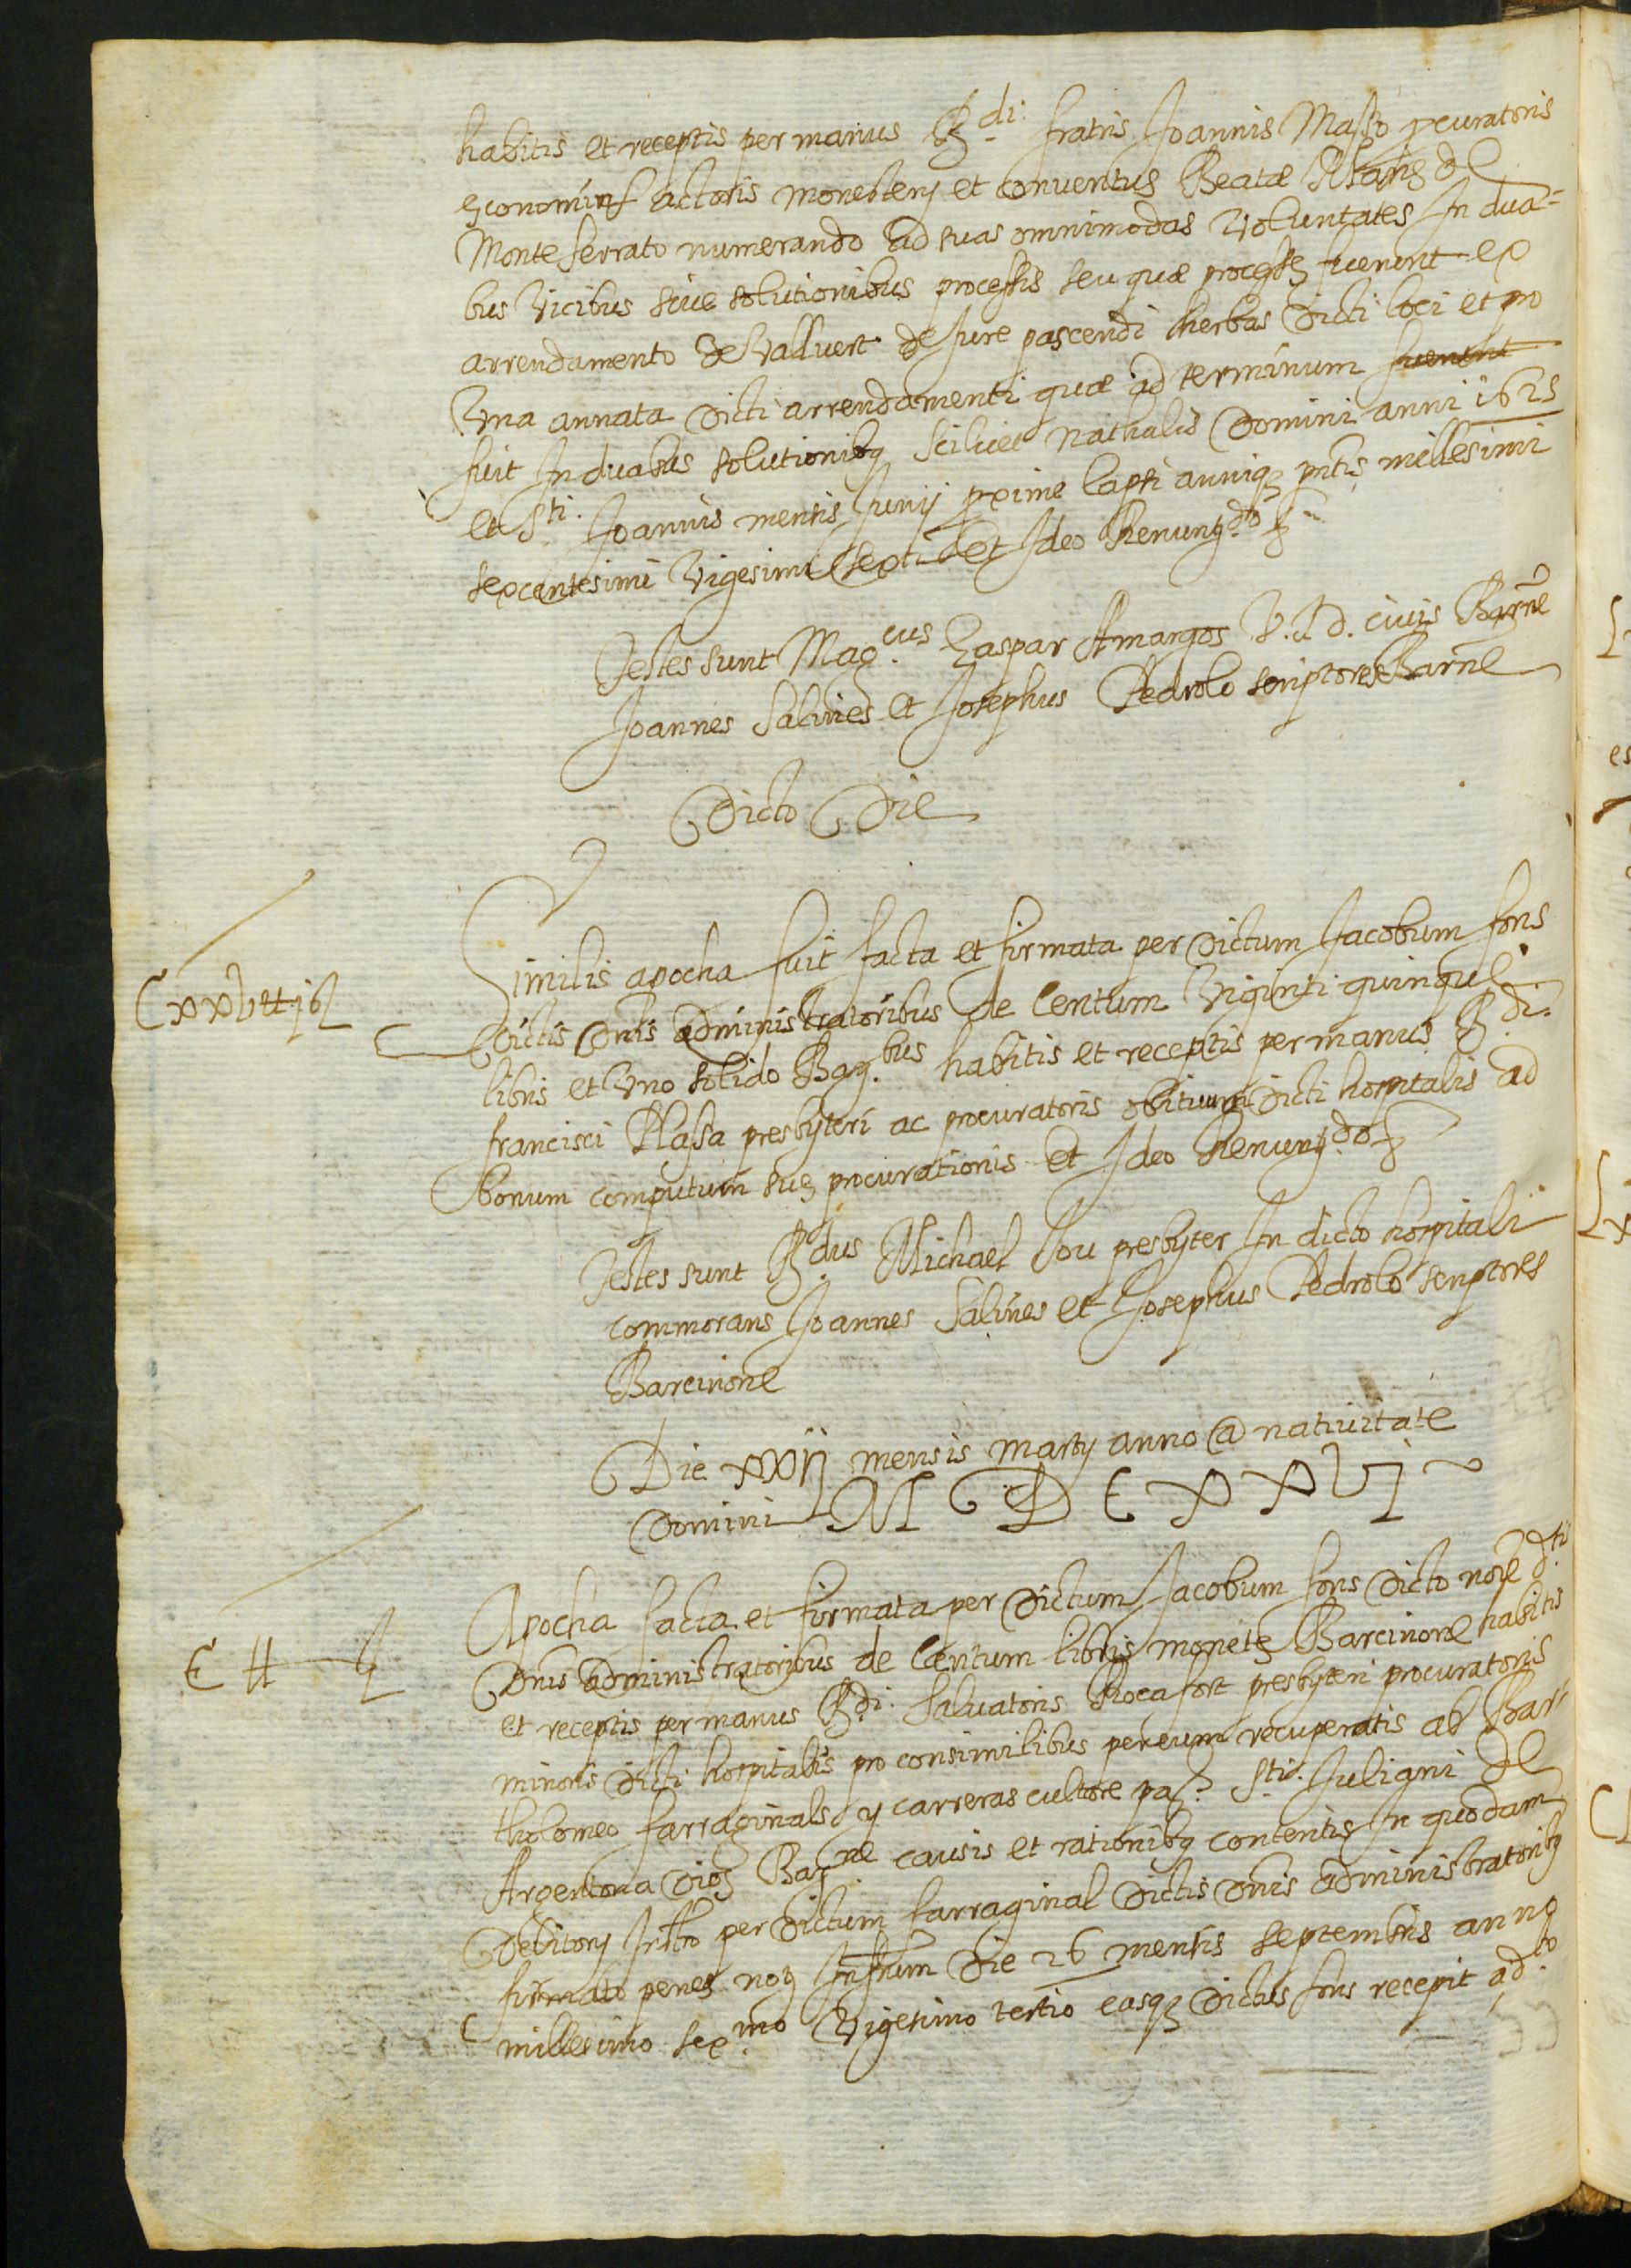 habitis et receptis per manus R.di fratris Joannis Masso procuratoris
economi actoris monesterij et conventus Beatæ Mariæ de
Monte serrato numerando ad suas omnimodas voluntates In dua=
bus vicibus sive solutionibus processis seu quæ processe fuerunt ex
arrendamento de Vallvert de Jure pascendi herbas dicti loci et pro
Una annata dicti arrendamenti quæ ad terminum fuerunt
fuit In duabus solutionibq scilicet nathalis Domini anni 1625
et S.ti Joannis mensis Junij proxime lapsi anniq pntis millesimi
sexcentesimi vigesimi sexti Et Ideo Renung.do &
Testes sunt Mag.cus Gaspar Amargos V.J.d. civis Barne
Joannes Salines et Josephus Pedrolo scriptores Barne
Dicto Die
Similis apocha fuit facta et firmata per dictum Jacobum fons
Cxxv ll j s
dictis Dnis administratoribus de Centum Viginti quinque
libris et Uno solido Barq.bus habitis et receptis per manus R.di
francisci Plasa presbyteri ac procuratoris obituum dicti hospitalis ad
bonum computum suę procurationis Et Ideo Renung.do &
Testes sunt R.dus Michael Jou presbyter In dicto hospitali
commorans Joannes Salines et Josephus Pedrolo scriptores
Barcinone
Die xxiij mensis martij anno @ nativitate
Domini M DC XX Vj
Apocha facta et firmata per dictum Jacobum fons dicto noie d.tis
C ll
Dnis administratoribus de Centum libris monetę Barcinone habitis
et receptis per manus R.di Salvatoris Rocafort presbyteri procuratoris
minoris dicti hospitalis pro consimilibus per eum recuperatis ab Bar=
tholomeo farraginals y carreras cultore pa.ę S.ti Juliani de
Argentona diog Bar.ne causis et rationibq contentis In quodam
Debitorij Instro per dictum farraginal dictis Dnis administratoribq
firmato penes noz Infrum die 26 mensis septembris anno
millesimo sex.mo vigesimo tertio easq dictus fons recepit ad